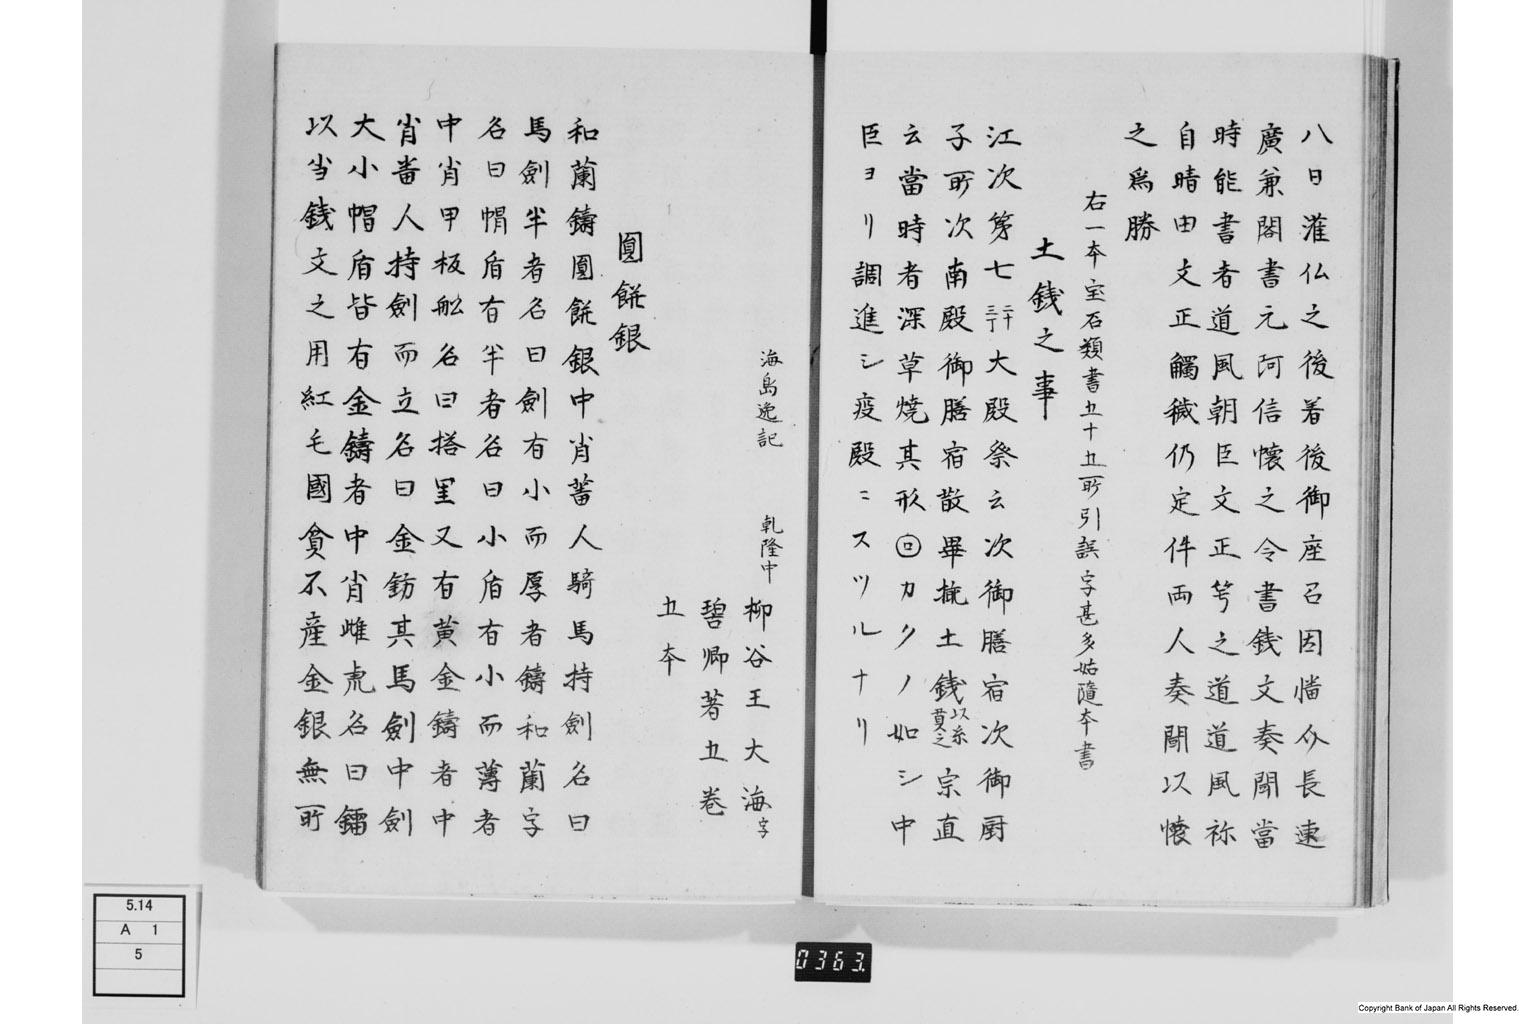 八日灌仏之後着後御座召因幡介長連
廣兼閣書元阿信懐之令書銭文奏聞當
時能書者道風朝臣文正等之道道風祢
自晴田文正觸穢仍定件両人奏聞以懐
之為勝
右一本宝石類書五十五所引誤字甚多姑隨本書
土銭之事
江次第七二十三丁大殿祭云次御膳宿次御厨
子所次南殿御膳宿散畢撓土銭以糸貫之宗直
云當時者深草焼其形回カクノ如シ中
臣ヨリ調進シ疫殿ニスツルナリ
海島逸記 乾隆中 柳谷王大海字
碧卿著五巻
五本
圓餅銀
和蘭鑄圓餅銀中肖蕃人騎馬持劍名曰
馬劍半者名曰劍有小而厚者鑄和蘭字
名曰帽盾有半者名曰小盾有小而薄者
中肖甲板船名曰搭里又有黄金鑄者中
肖畨人持劍而立名曰金鈁其馬劍中劍
大小帽盾皆有金鑄者中肖雌虎名曰鐳
以当銭文之用紅毛國貧不産金銀無所
5.14
A 1
5
0363.
Copyright Bank of Japan All Rights Reserved.